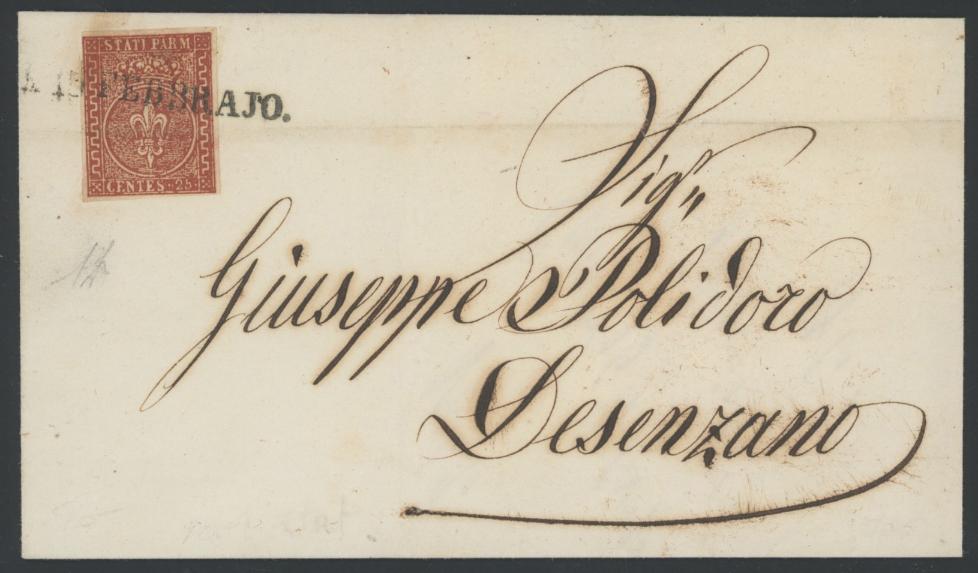 STATI PARM
15 FEBBRAJO.
CENTES. 25
Sigr
Giuseppe Polidoro
Desenzano